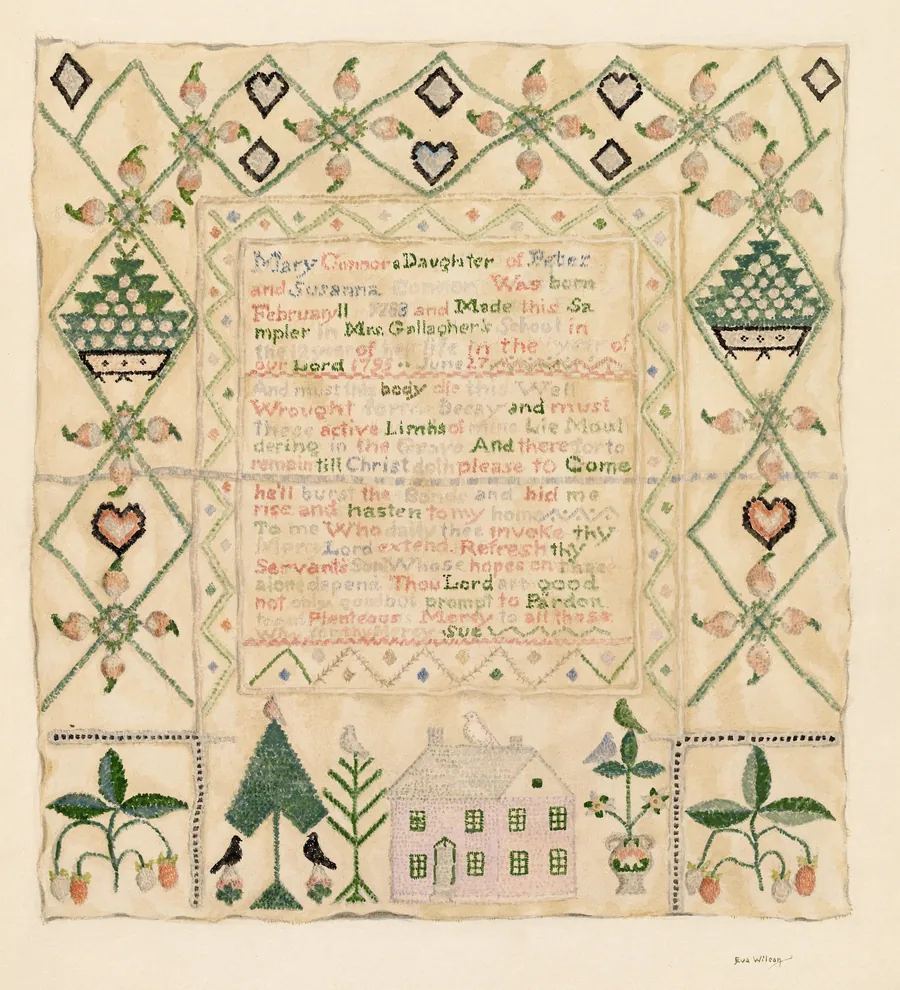 Mary Connor a Daughter of Peter
and Susanna Connor Was born
February 11 and Made this Sa
mpler in Mrs. Gallagher's School in
the of her life in the year of
our Lord 1795 June 27
And must this body die this Well
Wrought Decay and must
These active Limbs of mine Lie Moul
dering in the Grave And there for to
remain till Christ doth please to Come
he'll burst the Bonds and bid me
rise and hasten to my home
To me Who daily thee invoke thy
Mercy Lord extend. Refresh thy
Servants Soul Whose hopes on Thee
alone depend. Thou Lord art good
not only good but prompt to Pardon
too Plenteous Mercy to all those
Who for thy mercy Sue
Eva Wilson